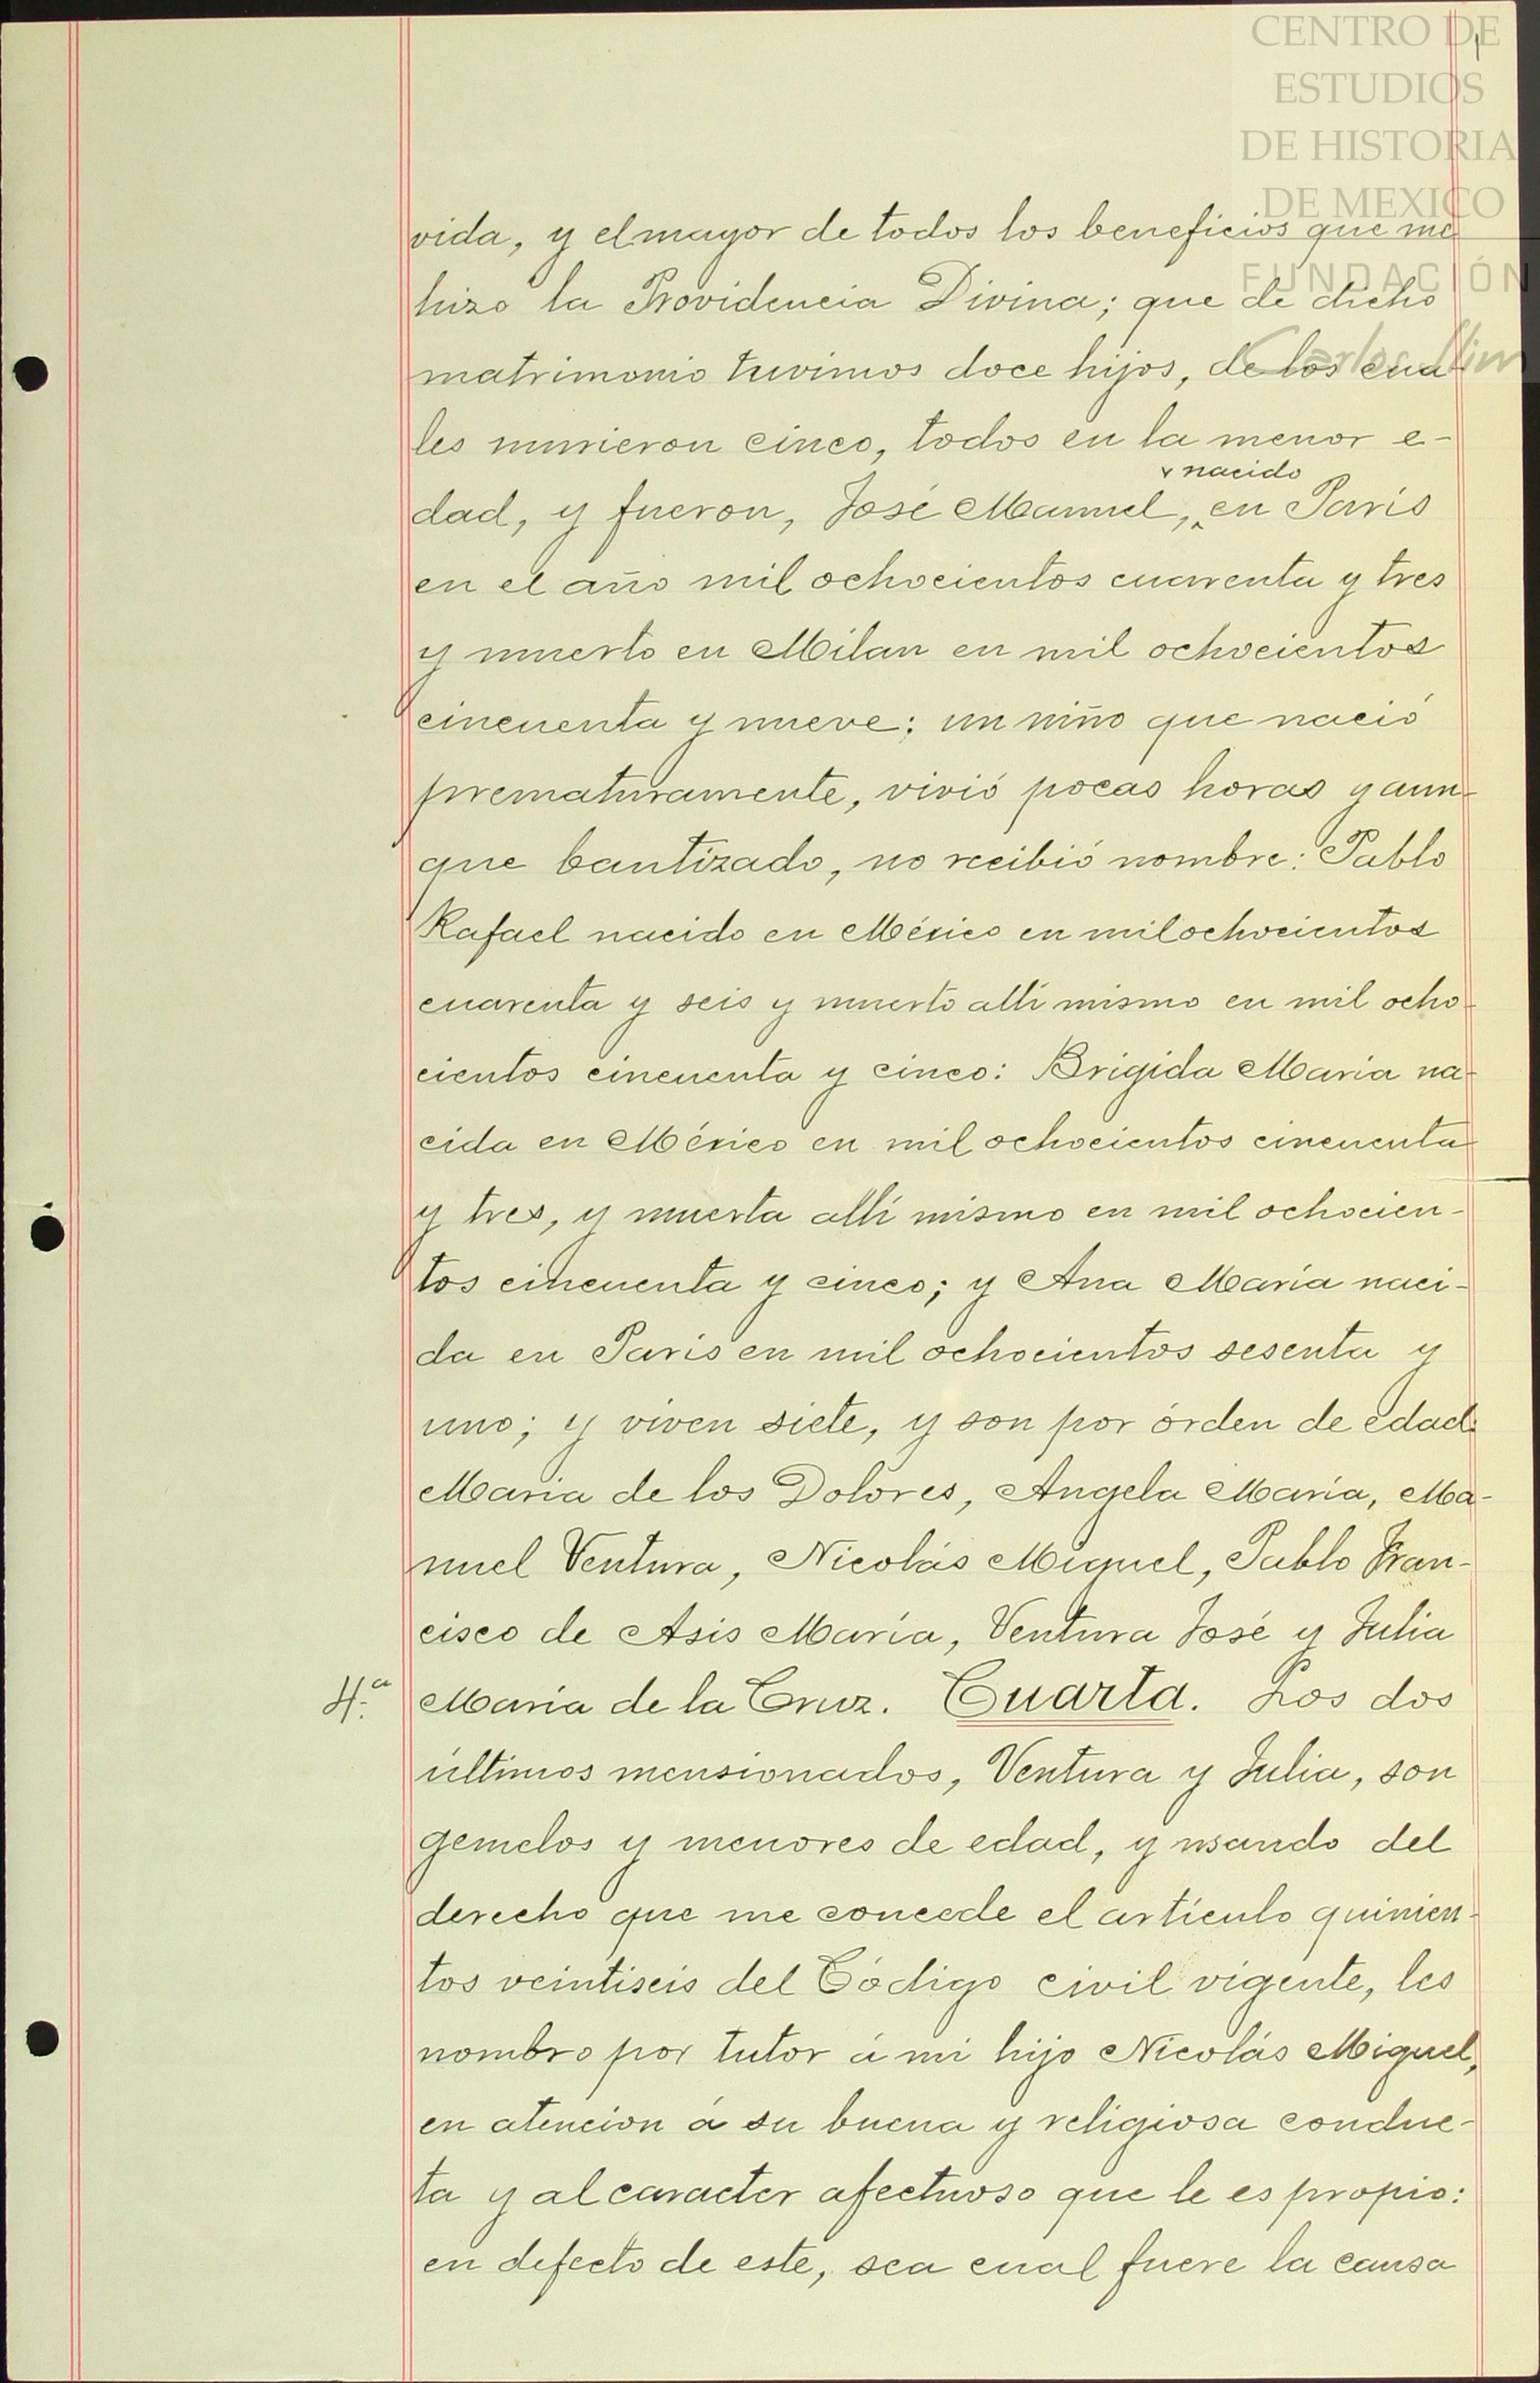 CENTRO DE
ESTUDIOS
DE HISTORIA
DE MEXICO
FUNDACIÓN
Carlos Slim
vida, y el mayor de todos los beneficios que me
hizo la Providencia Divina; que de dicho
matrimonio tuvimos doce hijos, de los cua-
les murieron cinco, todos en la menor e-
nacido
dad, y fueron, José Manuel, en París
en el año mil ochocientos cuarenta y tres
y muerto en Milan en mil ochocientos
cincuenta y nueve; un niño que nació
prematuramente, vivió pocas horas y aun-
que bautizado, no recibió nombre: Pablo
Rafael nacido en México en mil ochocientos
cuarenta y seis y muerto allí mismo en mil ocho-
cientos cincuenta y cinco: Brigida Maria na-
cida en México en mil ochocientos cincuenta
y tres, y muerta allí mismo en mil ochocien-
tos cincuenta y cinco; y Ana María naci-
da en Paris en mil ochocientos sesenta y
uno; y viven siete, y son por órden de edad:
Maria de los Dolores, Angela María, Ma-
nuel Ventura, Nicolás Miguel, Pablo Fran-
cisco de Asis María, Ventura José y Julia
4.a Maria de la Cruz. Cuarta. Los dos
últimos mensionados, Ventura y Julia, son
gemelos y menores de edad, y usando del
derecho que me concede el artículo quinien-
tos veintiseis del Código civil vigente, les
nombro por tutor á mi hijo Nicolás Miguel,
en atencion á su buena y religiosa conduc-
ta y al caracter afectuoso que le es propio:
en defecto de este, sea cual fuere la causa